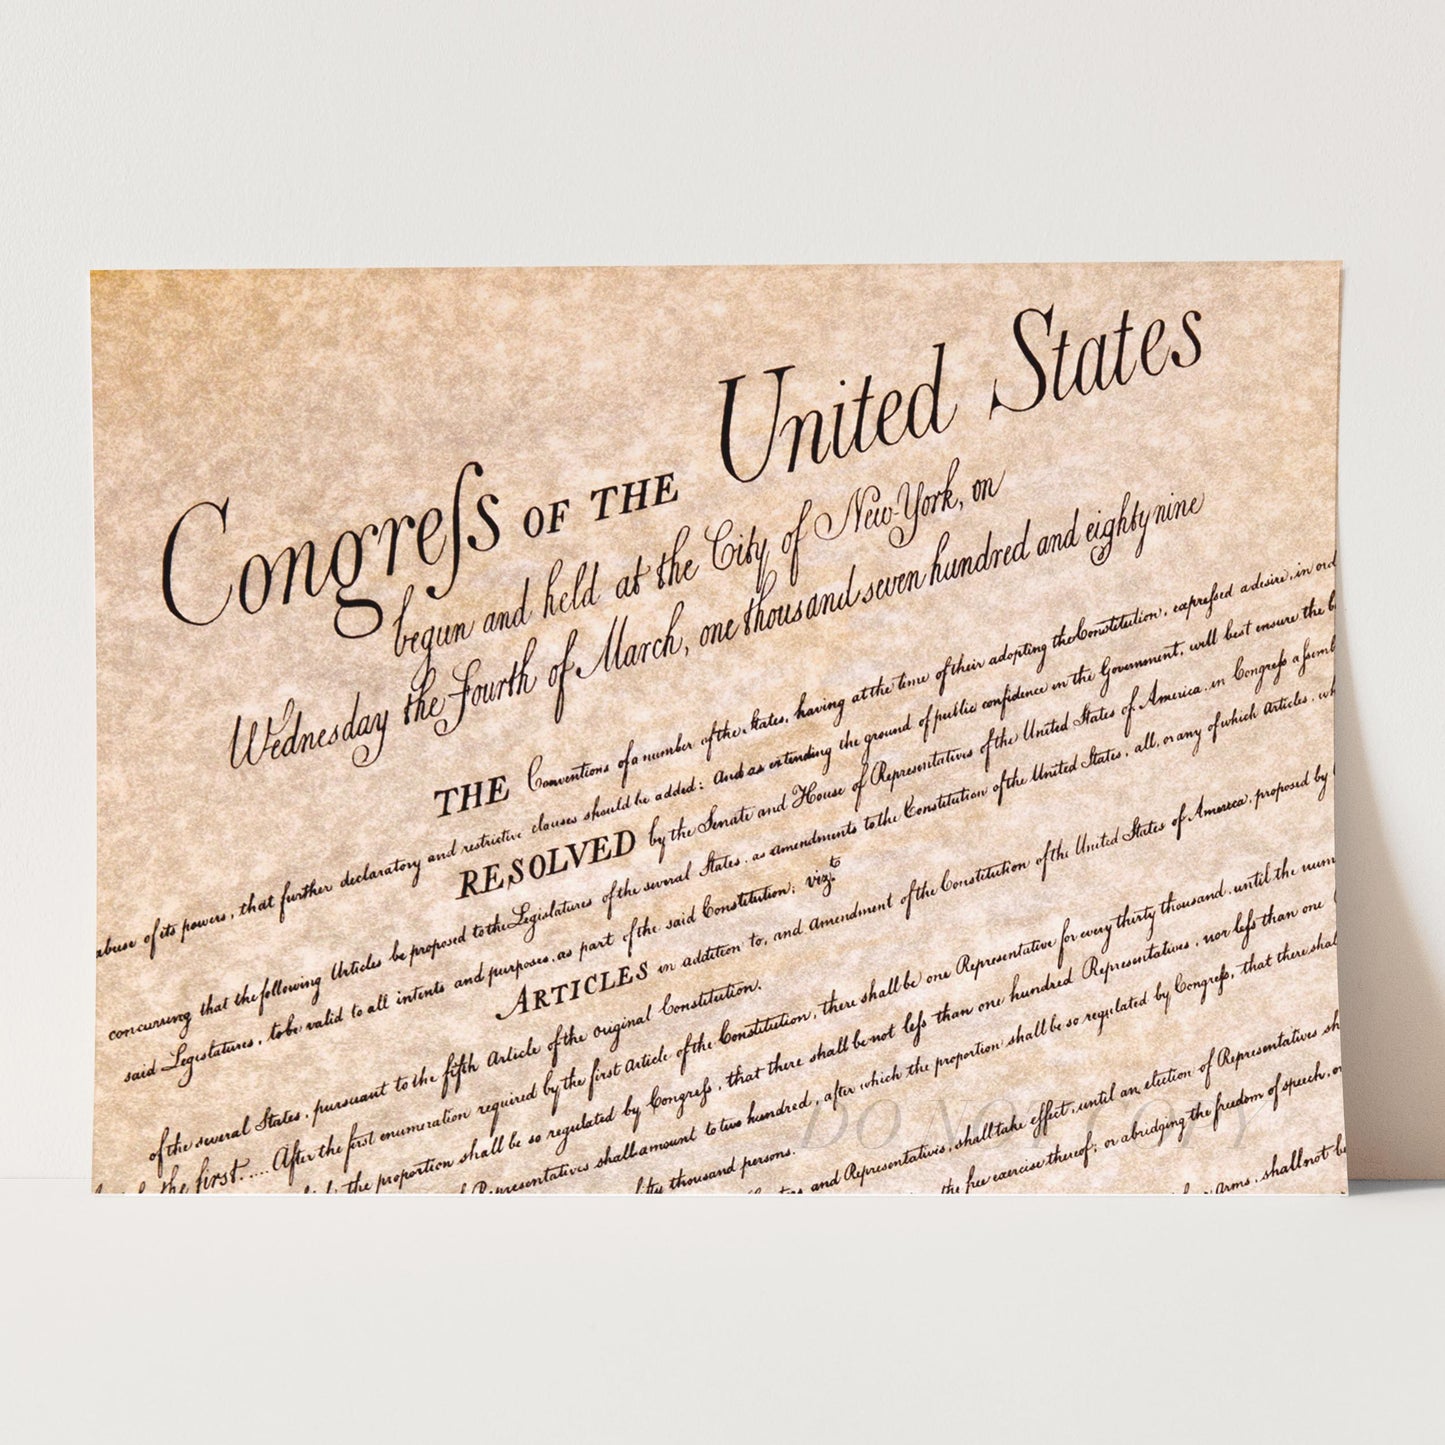 Congreſs OF THE United States
begun and held at the City of New-York, on
Wednesday the Fourth of March, one thousand seven hundred and eighty nine
THE Conventions of a number of the States, having at the time of their adopting the Constitution, expreſsed a desire, in ord
abuse of its powers, that further declaratory and restrictive clauses should be added: And as extending the ground of public confidence in the Government, will best ensure the b
RESOLVED by the Senate and House of Representatives of the United States of America, in Congreſs aſsemb
concurring that the following Articles be proposed to the Legislatures of the several States, as amendments to the Constitution of the United States, all, or any of which Articles, wh
said Legislatures, to be valid to all intents and purposes, as part of the said Constitution; vizt
ARTICLES in addition to, and Amendment of the Constitution of the United States of America, proposed by
of the several States, pursuant to the fifth Article of the original Constitution.
the first..... After the first enumeration required by the first Article of the Constitution, there shall be one Representative for every thirty thousand, until the num
the proportion shall be so regulated by Congreſs, that there shall be not leſs than one hundred Representatives, nor leſs than one
Representatives shall amount to two hundred, after which the proportion shall be so regulated by Congreſs, that there shal
fifty thousand persons.
and Representatives, shall take effect, until an election of Representatives sh
the free exercise thereof; or abridging the freedom of speech, or
Arms, shall not be
DO NOT COPY